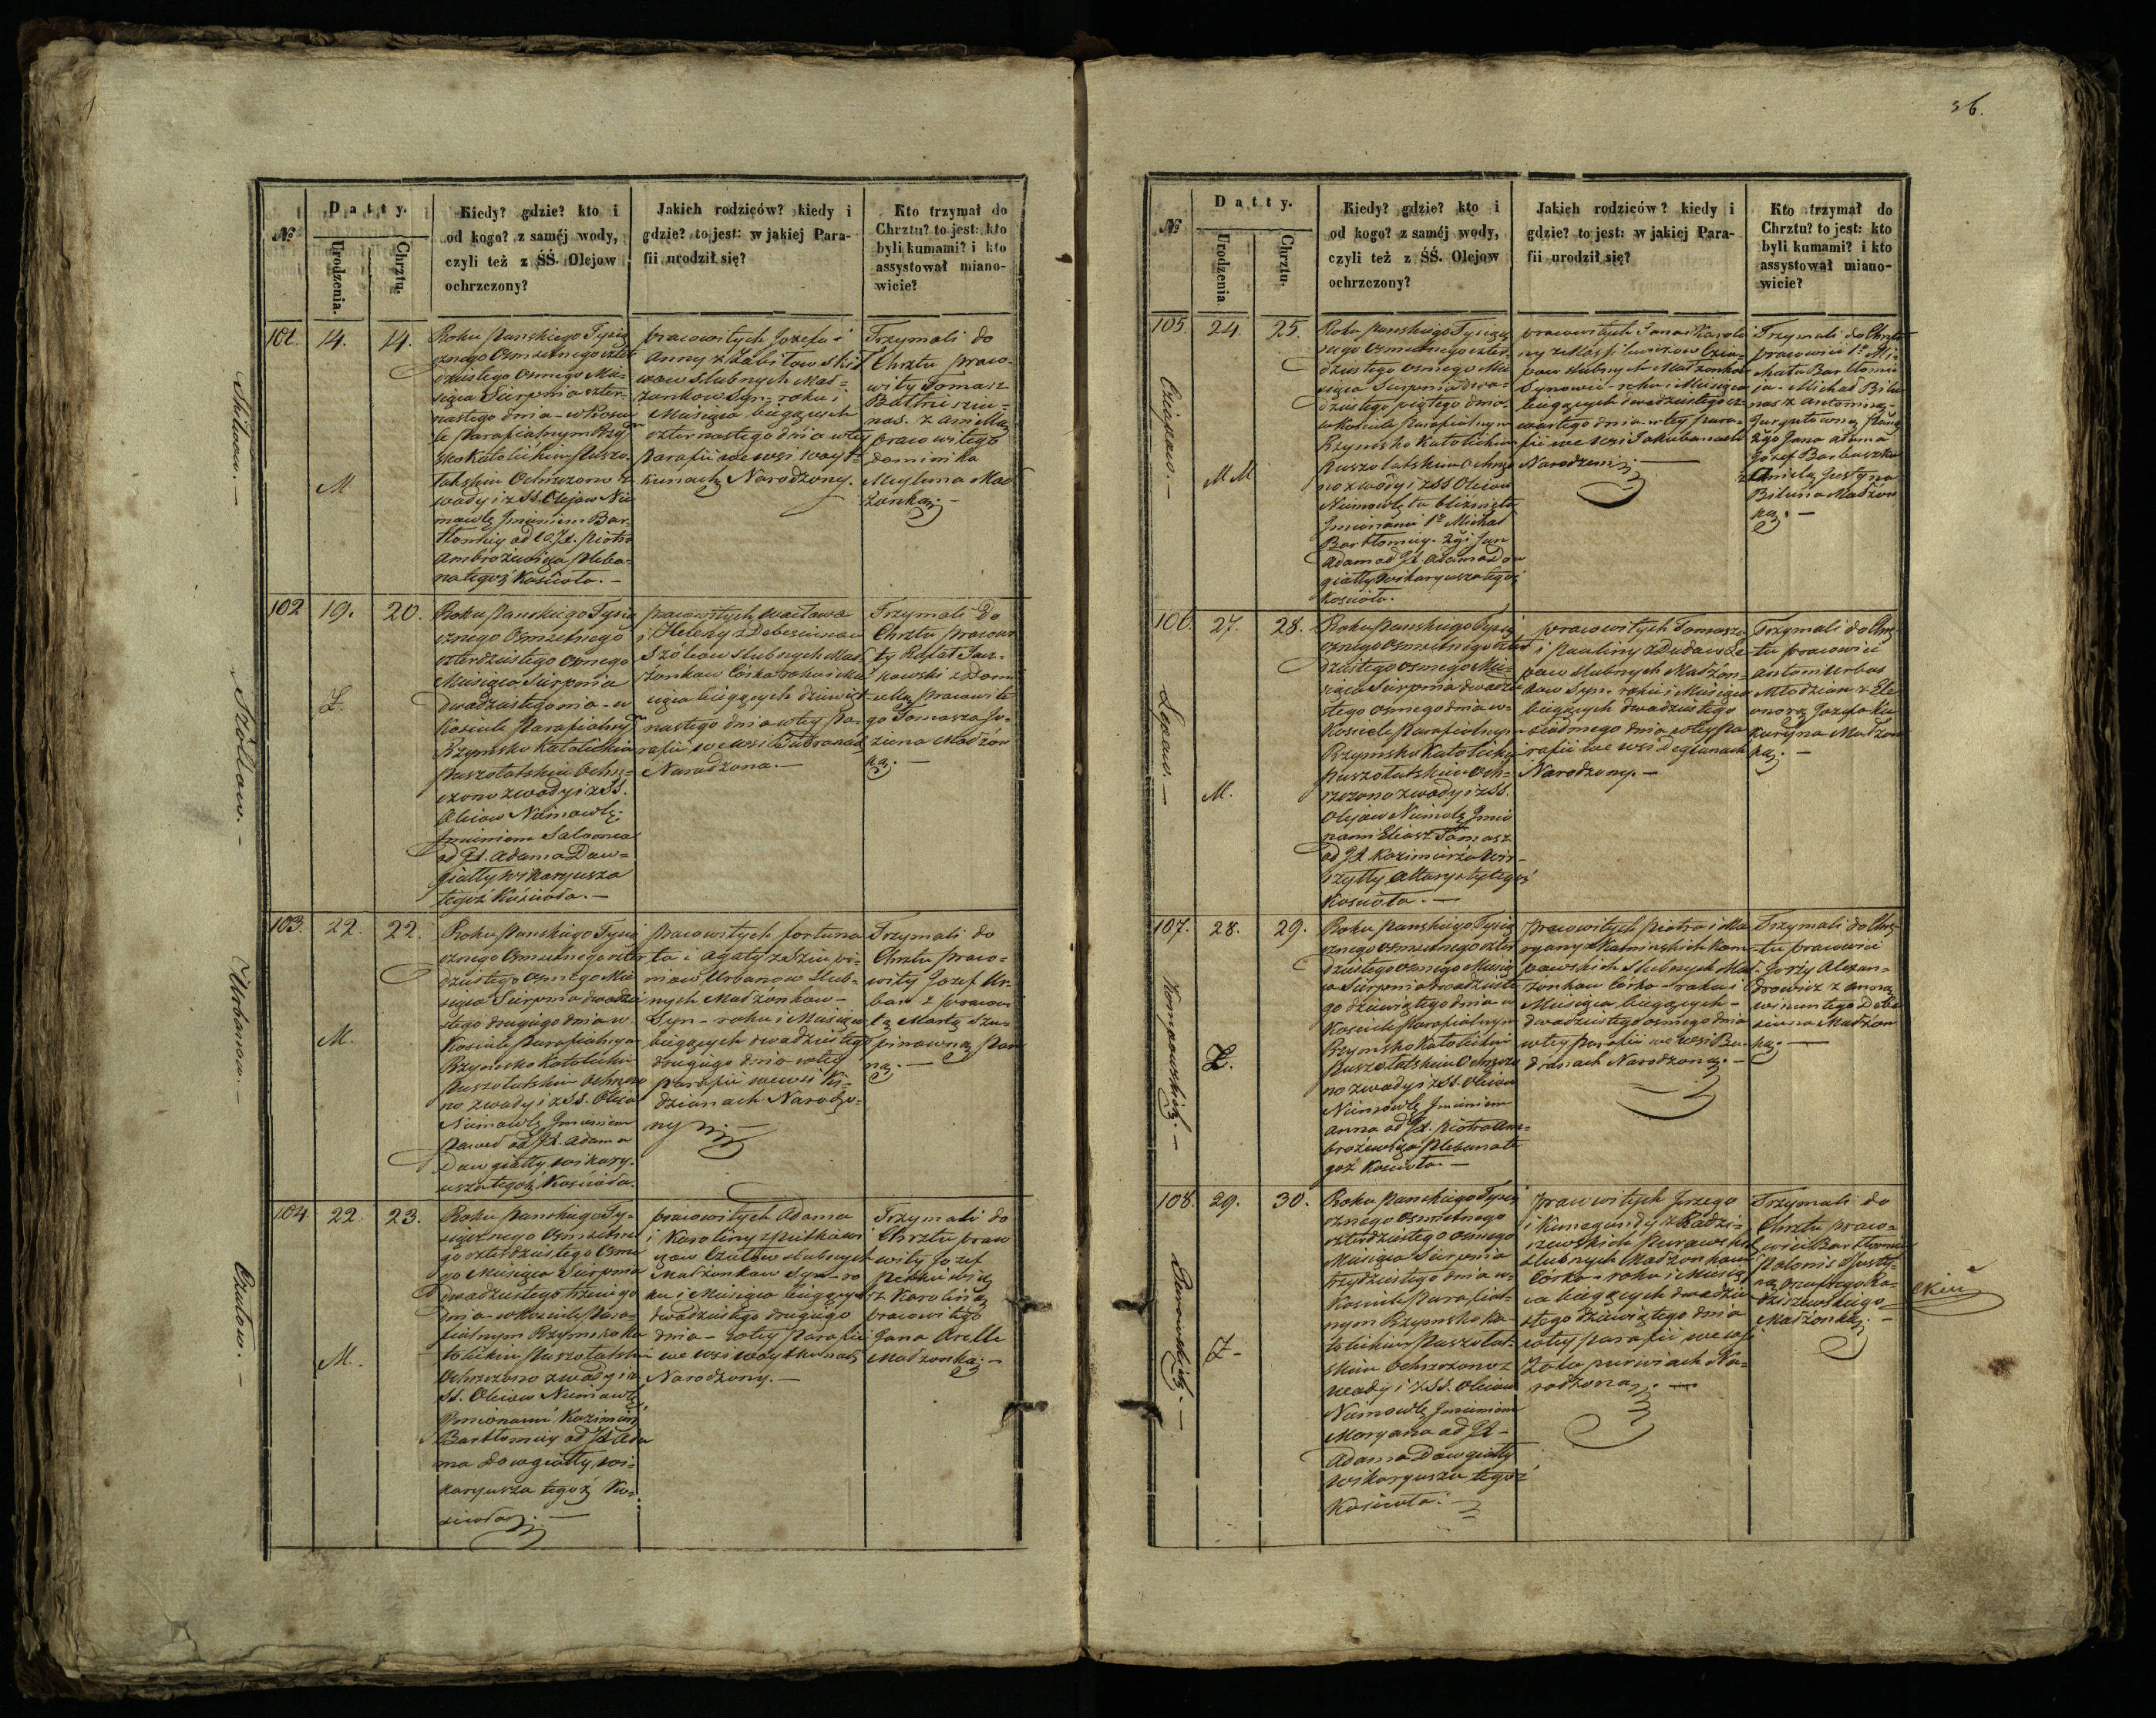 36.
№
Datty.
Urodzenia.
Chrztu.
Kiedy? gdzie? kto i
od kogo? z saméj wody,
czyli też z ŚŚ. Olejow
ochrzczony?
Jakich rodziców? kiedy i
gdzie? to jest: w jakiej Para-
fii urodził się?
Kto trzymał do
Chrztu? to jest: kto
byli kumami? i kto
assystował miano-
wicie?
101. 14. 14.
M
Roku Panskiego Tysią
cznego Osmsetnego czter
dziestego Osmego Mie-
siąca Sierpnia czter-
nastego dnia - w Koscie
le Parafialnym Rzym
sko Katolickim Puszo
łatskim Ochrzczono z
wody i z SS. Olejow Nie
mowlę Jmieniem Bar-
tłomiey od JX. Piotra
Ambrożewicza Pleba-
na tegoż Kościoła. -
pracowitych Jozefa i
Anny
slubnych Mał-
żonkow Syn - roku i
Miesiąca bieżących
czternastego dnia w tey
Parafii we wsi Woyt-
kunach Narodzony.
Trzymali do
Chrztu praco-
wity Tomasz
z Anną
pracowitego
Dominika
Mał
żonką. -
102 19. 20.
Ż.
Roku Panskiego Tysią
cznego Osmsetnego
czterdziestego osmego
Miesiąca Sierpnia
dwudziestego dnia - w
Kosciele Parafialnym
Rzymsko Katolickim
Puszołatskim Ochrz-
czono z wody i z SS.
Oleiow Niemowlę
Jmieniem Salomea
od JX. Adama Daw-
giałły Wikaryusza
tegoż Kościoła. -
pracowitych Wacława
i Heleny z Debesiunow
Szólców slubnych Mał-
żonkow Córka roku i Mie
siąca bieżących dziewięt
nastego dnia w tey Pa-
rafii we wsi
Narodzona. -
Trzymali do
Chrztu pracowi
ty Rafał Jan-
kowski z
pracowite
go Tomasza
Małżon
ką. -
103. 22. 22.
M.
Roku Panskiego Tysią
cznego Osmsetnego czter
dziestego Osmego Mie
siąca Sierpnia dwudzie
stego drugiego dnia w
Kosciele Parafialnym
Rzymsko Katolickim
Puszołatskim Ochrzczo
no z wody i z SS. Oleiow
Niemowlę Jmieniem
Paweł od JX. Adama
Dawgiałły Wikary-
usza tegoż Kościoła.
pracowitych Fortuna
ta i Agaty
Urbanow slub-
nych Małżonkow -
Syn - roku i Miesiąca
bieżących dwudziestego
drugiego dnia w tey
Parafii we wsi Ki-
dzianach Narodzo-
ny. -
Trzymali do
Chrztu praco-
wity Jozef Ur-
ban z pracowi
tą Martą
Pan
ną. -
104 22. 23.
M.
Roku Panskiego Ty-
siącznego Osmsetne
go czterdziestego Osme
go Miesiąca Sierpnia
dwudziestego trzeciego
dnia - w Kosciele Para-
fialnym Rzymsko Ka
tolickim Puszołatskim
Ochrzczono z wody i z
SS. Oleiow Niemowlę
Jmionami Kazimierz
Bartłomiey od JX Ada
ma Dowgiałły Wi-
karyusza tegoż Ko-
scioła. -
pracowitych Adama
i Karoliny z Pietkiewi
czow Czutow slubnych
Małżonkow Syn - ro
ku i Miesiąca bieżących
dwudziestego drugiego
dnia - w tey Parafii
we wsi Woytkunach
Narodzony. -
Trzymali do
Chrztu praco
wity Jozef
Pietkiewicz
z Karoliną
pracowitego
Jana
Małżonką. -
Szólcow. -
Urbanow. -
Czutow. -
№
Datty.
Urodzenia.
Chrztu.
Kiedy? gdzie? kto i
od kogo? z saméj wody,
czyli też z ŚŚ. Olejow
ochrzczony?
Jakich rodziców? kiedy i
gdzie? to jest: w jakiej Para-
fii urodził się?
Kto trzymał do
Chrztu? to jest: kto
byli kumami? i kto
assystował miano-
wicie?
105. 24. 25.
M M
Roku Panskiego Tysiącz
nego Osmsetnego czter-
dziestego osmego Mie
siąca Sierpnia dwu-
dziestego piątego dnia
w Kosciele Parafialnym
Rzymsko Katolickim
Puszołatskim Ochrzczo
no z wody i z SS Oleiow
Niemowlęta bliźnięta
Jmionami 1º Michał
Bartłomiey. 2gi Jan
Adam od JX Adama Do
wgiałły Wikaryusza tegoż
Kościoła.
pracowitych Jana i Karoli
ny
slubnych Małżonkow
Synowie - roku i Miesiąca
bieżących dwudziestego cz-
wartego dnia w tey Para-
fii we wsi Jakubanach
Narodzeni. -
Trzymali do Chrztu
pracowici 1º Mi-
chała Bartłomie
ja - Michał Bilu
nas z Antoniną
Panną
2go Jana Adama
Jozef
z Anielą Justyna
Biluna Małżon
ką. -
106 27. 28.
M.
Roku Panskiego Tysią
cznego Osmsetnego czter
dziestego osmego Mie-
siąca Sierpnia dwudzie
stego osmego dnia w
Kosciele Parafialnym
Rzymsko Katolickim
Puszołatskim Och-
rzczono z wody i z SS.
Olejow Niemowlę Jmio
nami Eliasz Tomasz
od JX Kazimierza Wir-
szyłły Altarysty tegoż
Kościoła. -
pracowitych Tomasza
i Pauliny z Dudow Le
pow slubnych Małżon-
kow Syn - roku i Miesiąca
bieżących dwudziestego
siodmego dnia w tey Pa
rafii we wsi Deglanach
Narodzony. -
Trzymali do Chrz-
tu pracowici
Antoni Urban
Młodzian z Ele
onorą Jozefa
Małżon
ką. -
107. 28. 29.
Ż.
Roku Panskiego Tysią
cznego Osmsetnego czter
dziestego osmego Miesią
ca Sierpnia dwudzieste
go dziewiątego dnia w
Kosciele Parafialnym
Rzymsko Katolickim
Puszołatskim Ochrzczo
no z wody i z SS. Oleiow
Niemowlę Jmieniem
Anna od JX. Piotra Am-
brożewicza Plebana te
goż Kościoła. -
pracowitych Piotra i Ma
ryany z Kaminskich Kom-
powskich slubnych Mał-
żonkow Córka - roku i
Miesiąca bieżących -
dwudziestego osmego dnia
w tey Parafii we wsi Bu-
drianach Narodzona. -
Trzymali do Chrz-
tu pracowici
Jerzy Alexan-
drowicz z Anną
Wincentego Debe
siuna Małżon
ką. -
108. 29. 30.
Ż -
Roku Panskiego Tysią
cznego Osmsetnego
czterdziestego osmego
Miesiąca Sierpnia
trzydziestego dnia w
Kosciele Parafial-
nym Rzymsko Ka-
tolickim Puszołat-
skim Ochrzczono z
wody i z SS. Oleiow
Niemowlę Jmieniem
Maryana od JX -
Adama Dowgiałły
Wikaryusza tegoż
Kościoła. -
pracowitych Jerzego
i Kunegundy z Radzi-
szewskich Purawskich
slubnych Małżonkow
Córka - roku i Miesią
ca bieżących dwudzie
stego dziewiątego dnia
w tey Parafii we wsi
Na-
rodzona. -
Trzymali do
Chrztu praco-
wici Bartłomiey
z Justy-
ną Ra-
dziszewskiego
Małżonką. -
Lepow. -
Kompowskich. -
Purawskich. -